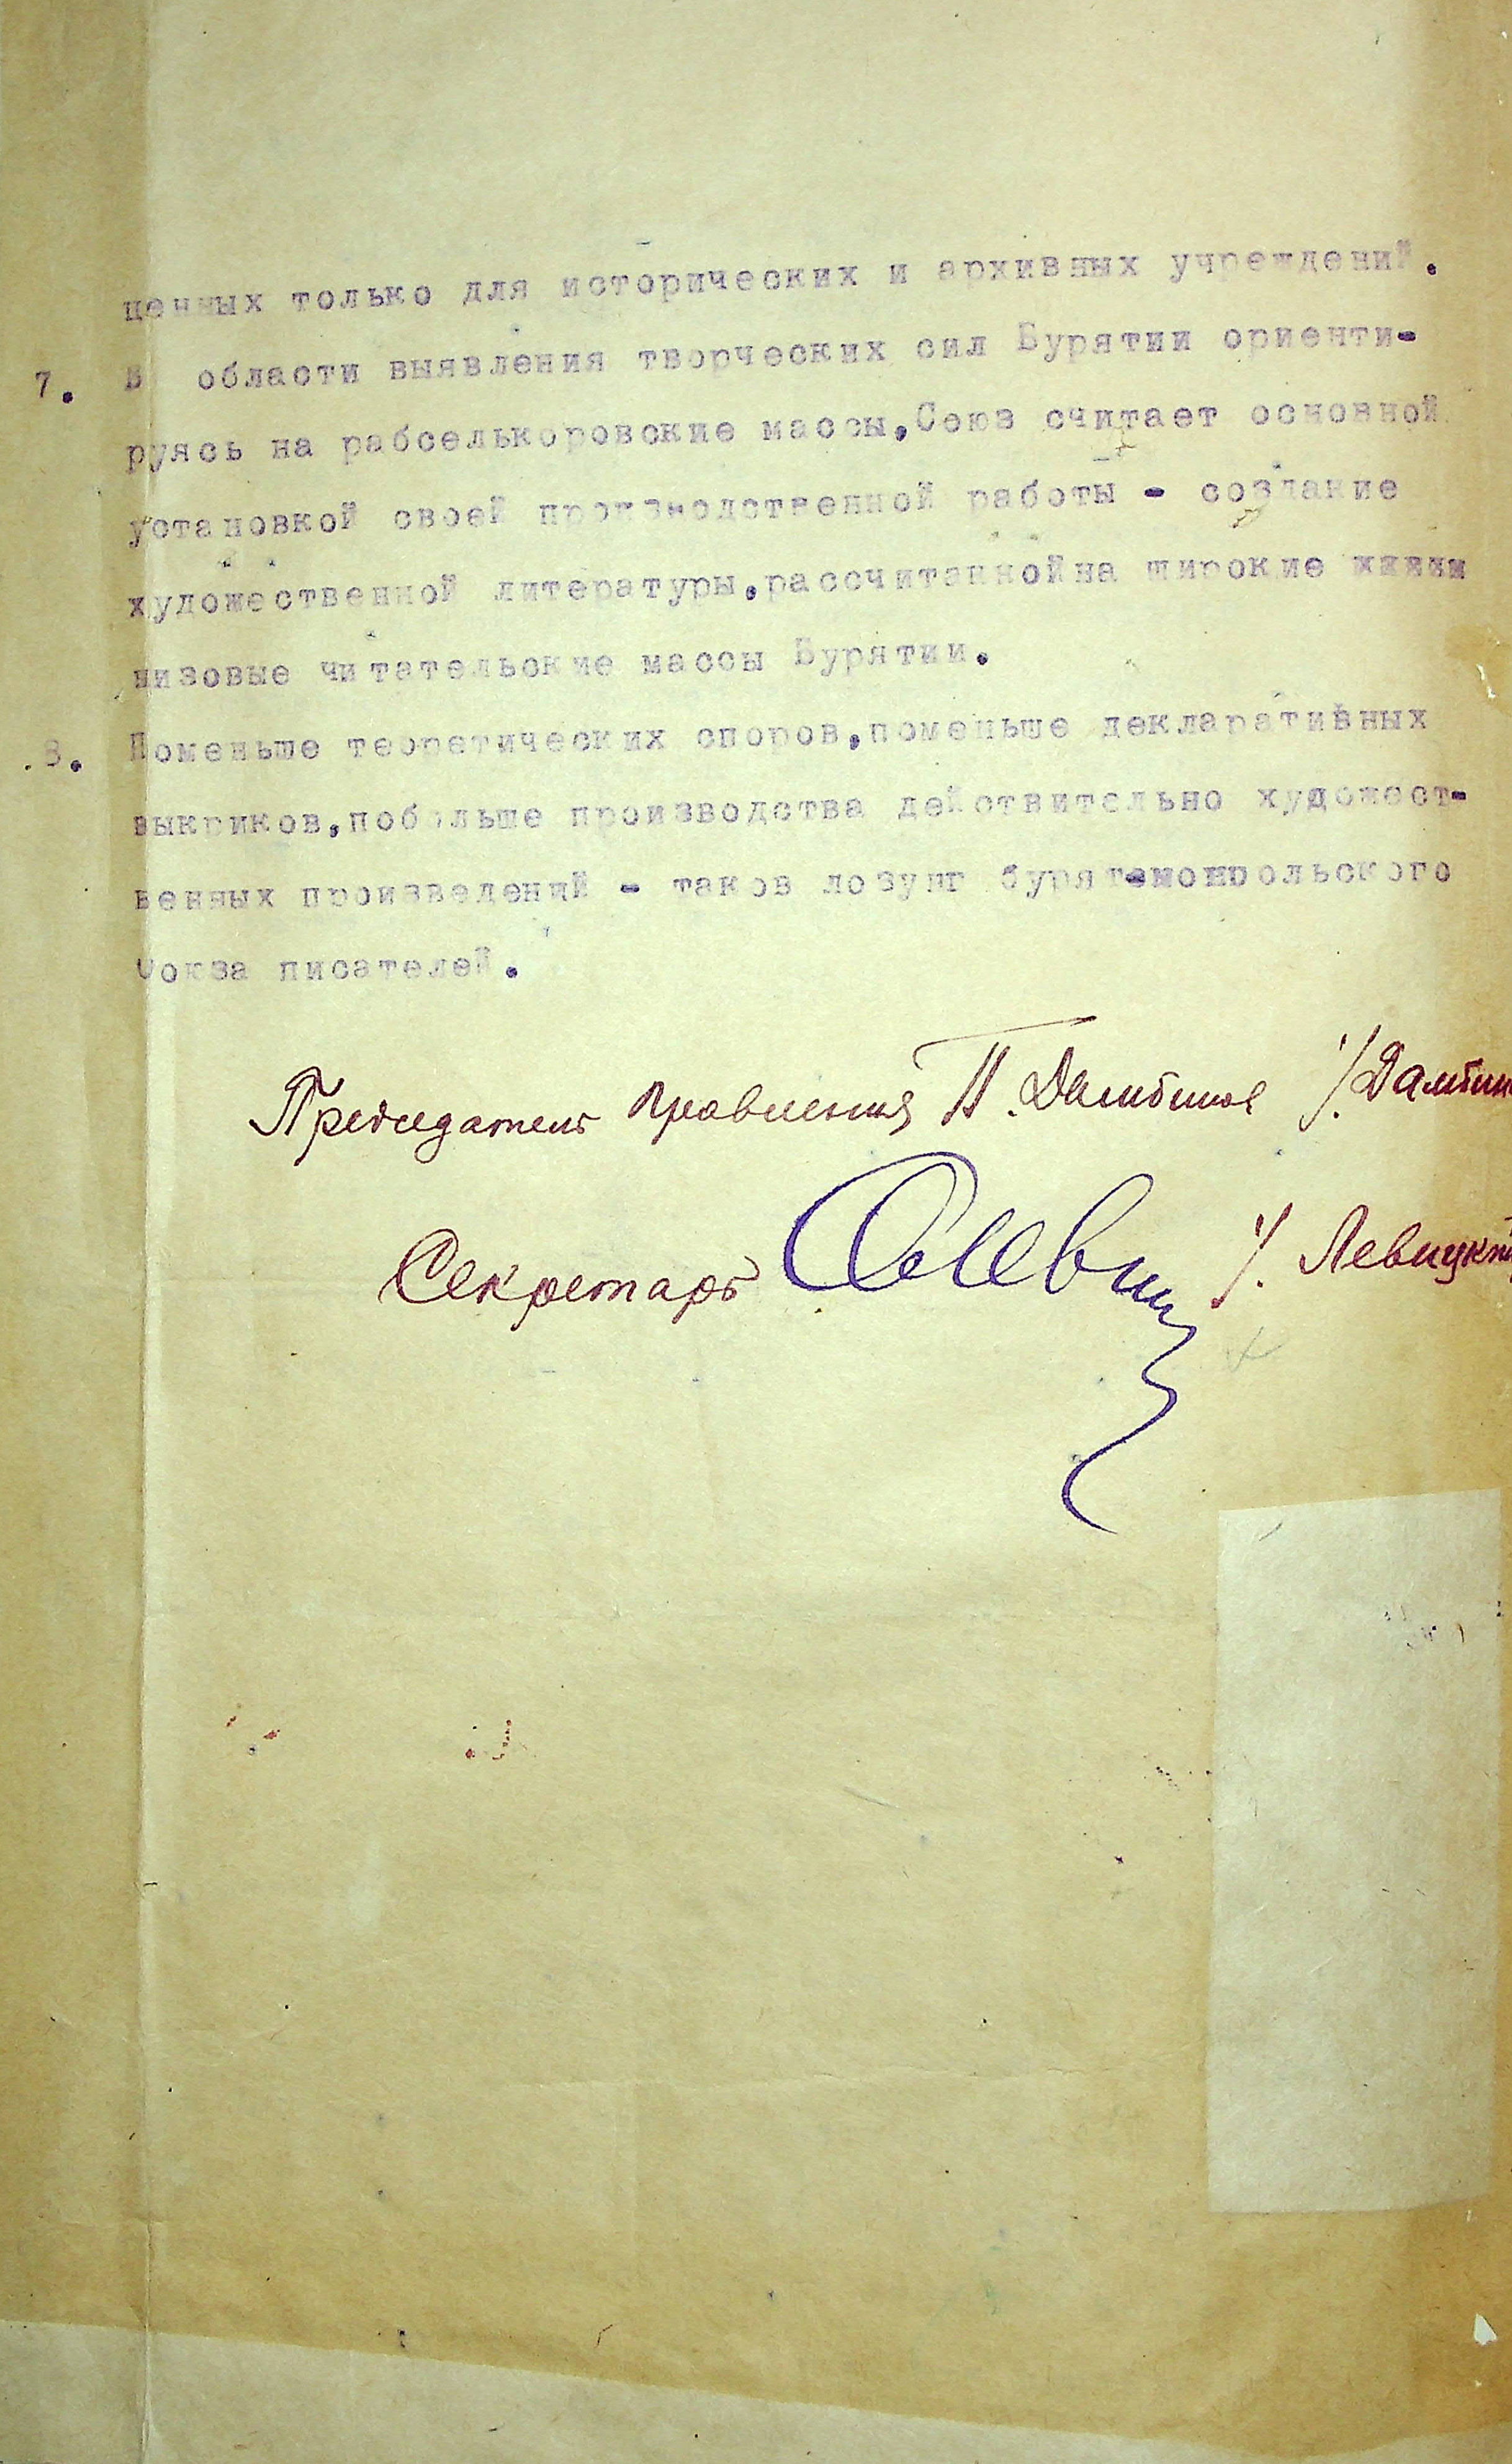 ценных только для исторических и архивных учреждений.
7. В области выявления творческих сил Бурятии ориенти-
руясь на рабселькоровские массы,Союз считает основной
установкой своей производственной работы - создание
художественной литературы,рассчитанной на широкие
низовые читательские массы Бурятии.
8. Поменьше теоретических споров,поменьше декларативных
выкриков,побольше производства действительно художест-
венных произведений - таков лозунг бурят-монгольского
Союза писателей.
Председатель правления П. Дамбинов /. Дамбин
Секретарь /. Левицки